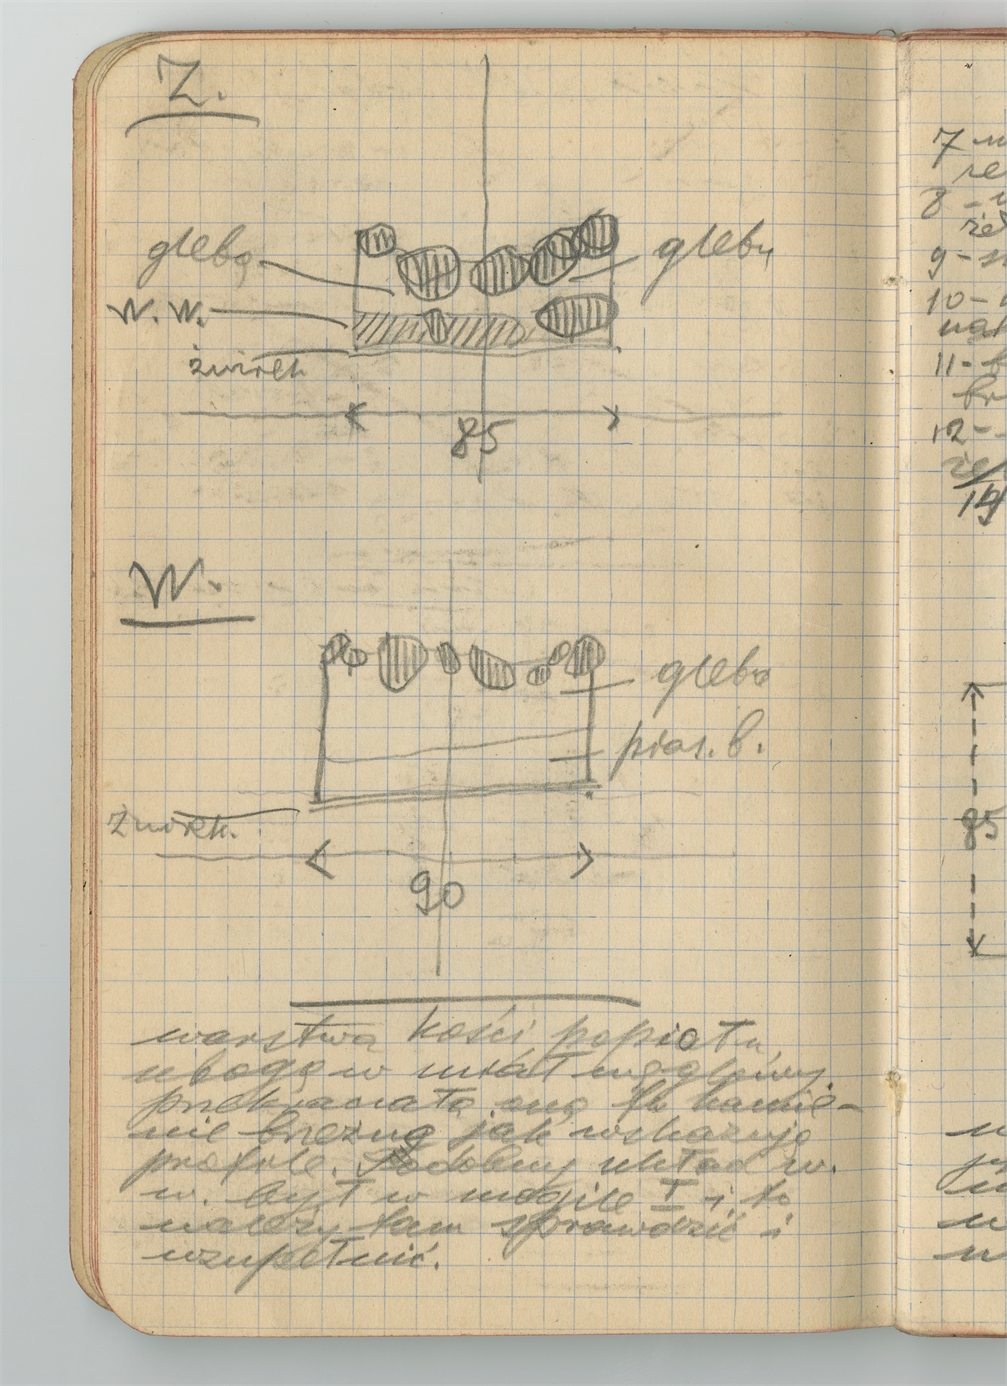 Z.
gleba
gleba
W. W.
żwirek
85
W.
gleba
pias. b.
żwirek.
90
warstwa kości, popiołu,
uboga w miał węglowy
przekraczała ona tu kamie-
nie brzeżne jak wskazują
profile. Podobny układ w.
w. był w mogile I i to
należy tam sprawdzić i
uzupełnić.
7 -
8 -
9 -
10 -
11 -
12 -
14
85